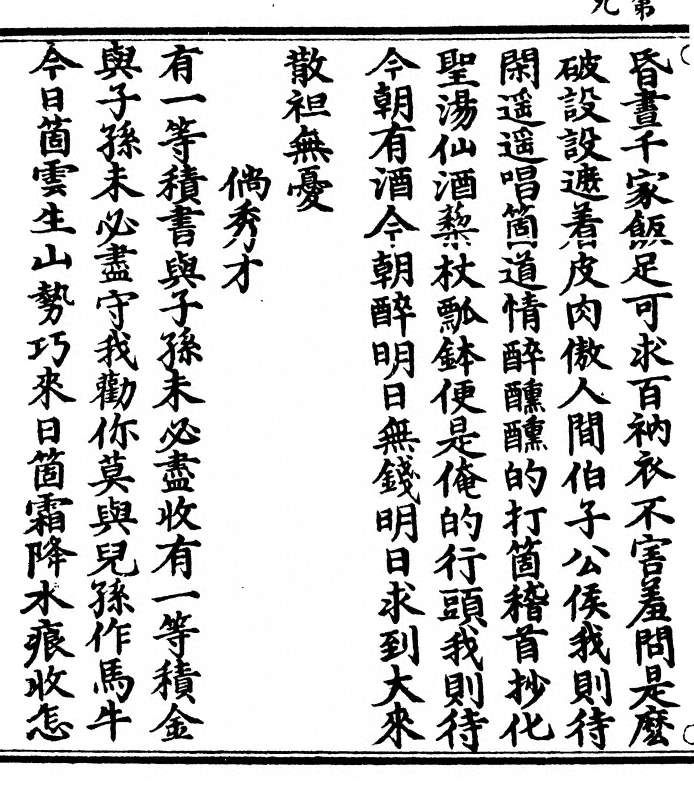 第九
昏晝千家飯足可求百衲衣不害羞問是麼
破設設遮着皮肉傲人間伯子公侯我則待
閑遥遥唱箇道情醉醺醺的打箇稽首抄化
聖湯仙酒藜杖瓢鉢便是俺的行頭我則待
今朝有酒今朝醉明日無錢明日求到大來
散袒無憂
倘秀才
有一等積書與子孫未必盡收有一等積金
與子孫未必盡守我勸你莫與兒孫作馬牛
今日箇雲生山勢巧來日箇霜降水痕收怎